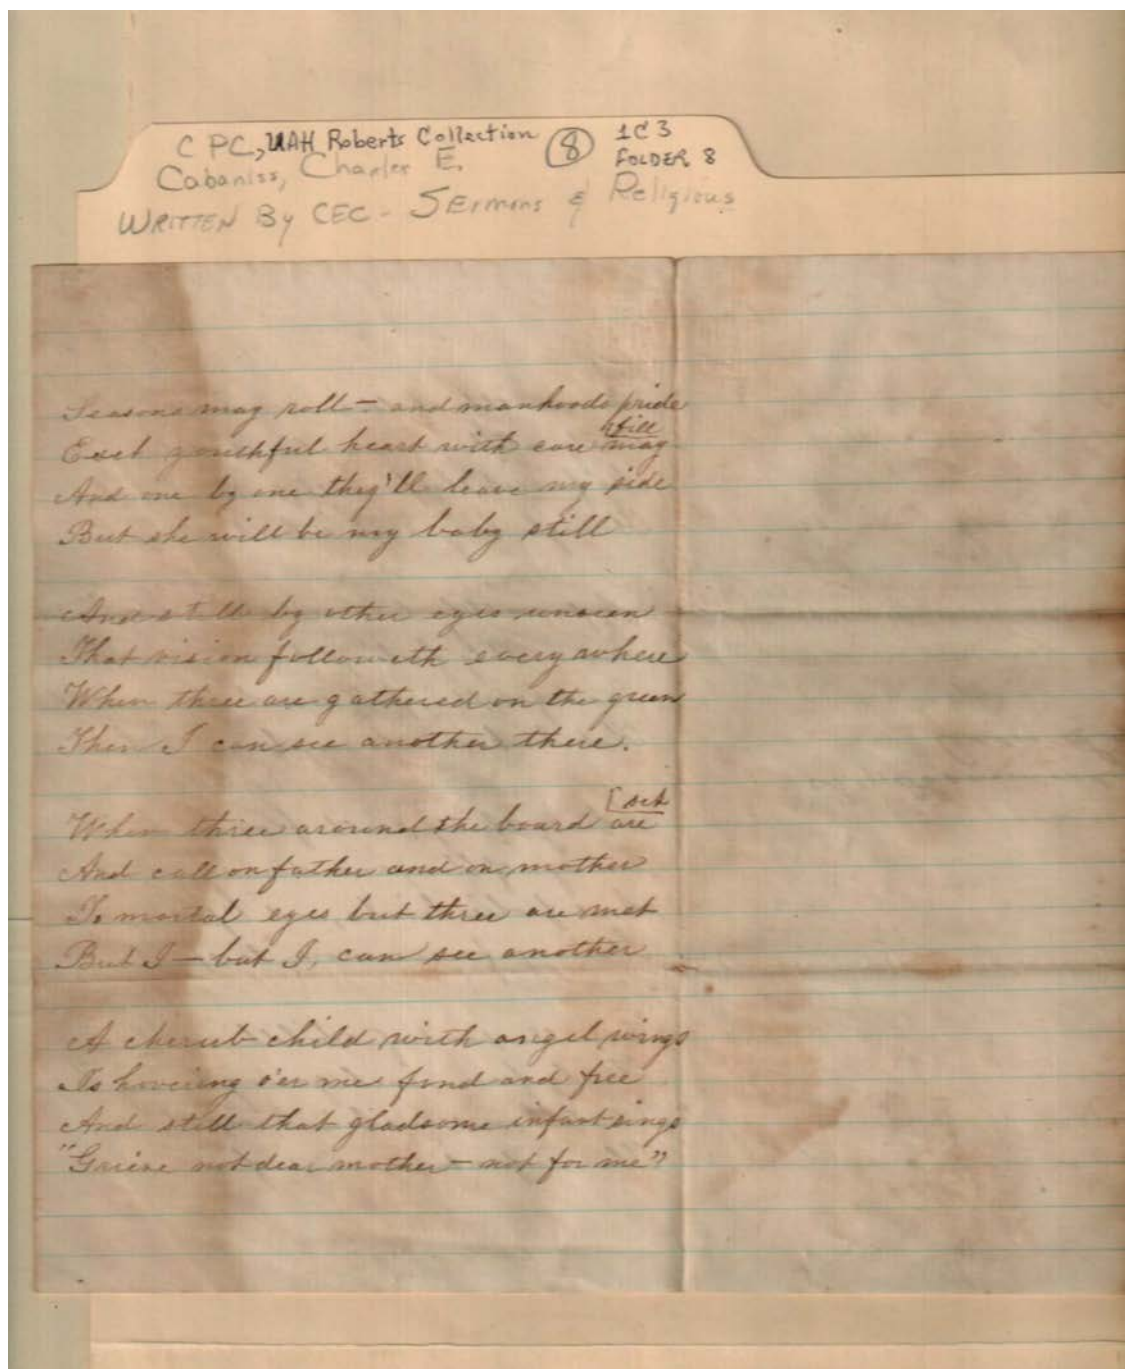 C PC, UAH Roberts Collection 8 1C3
Cabaniss, Charles E. FOLDER 8
WRITTEN By CEC - SErmons & Religious
Seasons may roll - and manhoods pride
[fill
Each youthful heart with care may
And one by one they'll leave my side
But she will be my baby still
And still by other eyes unseen
That vision followeth everywhere
When three are gathered on the green
Then I can see another there.
[set
When three around the board are
And call on father and on mother
To mortal eyes but three are met
But I - but I, can see another
A cherub child with angel wings
Is hovering o'er me fond and free
And still that gladsome infant sings
"Grieve not dear mother - not for me"